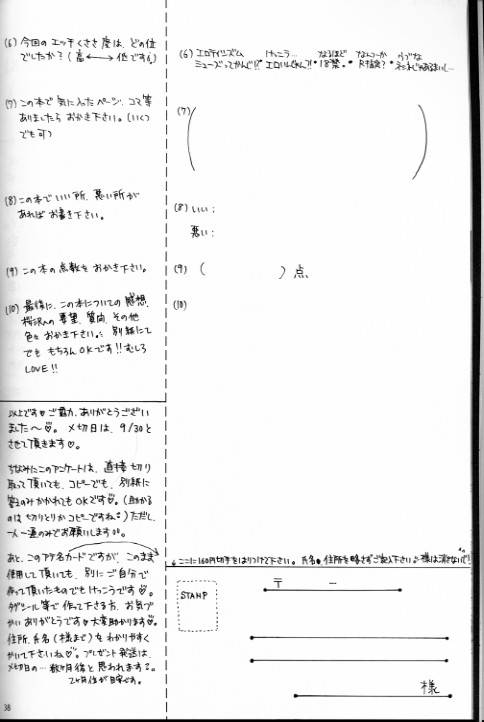 (6) 今回のエッチくささ度は、どの位
でしたか?(高←→低です。)
(7) この本で気に入ったページ、コマ等
ありましたらおかき下さい。(いくつ
でも可)
(8) この本でいい所、悪い所が
あればお書き下さい。
(9) この本の点数をおかき下さい。
(10) 最後に、この本についての感想、
への要望、質問、その他
色々おかき下さい。別紙にて
でももちろんOKです!!むしろ
LOVE!!
以上です♡ご協力、ありがとうござい
ました〜♡。〆切日は、9/30と
させて頂きます♡。
ちなみにこのアンケートは、直接切り
取って頂いても、コピーでも、別紙に
答えのみかかれてもOKです♡。(助かる
のは切りとりかコピーですね♪)ただし、
一人一通のみでお願いします。
あと、このアテ名カードですが、このまま
使用して頂いても、別にご自分で
作って頂いたものでもけっこうです♡。
タックシール等で作って下さる方、お気づ
かいありがとうです♡大変助かります♡。
住所、氏名(様まで)をわかりやすく
かいて下さいね♡。プレゼント発送は、
〆切日の…数ヶ月後と思われます。
2ヶ月位が目安です。
38
(6) エロティシズム けっこう… なるほど なんつーか うぶな
ミューズってかんじ!! エロいじゃん?! 18禁。 R指定?
(7) ( )
(8) いい:
悪い:
(9) ( )点
(10)
↓ここに160円切手をはりつけて下さい。氏名・住所を略さずご記入下さい♪様は消さないで!
STAMP
〒 −
様